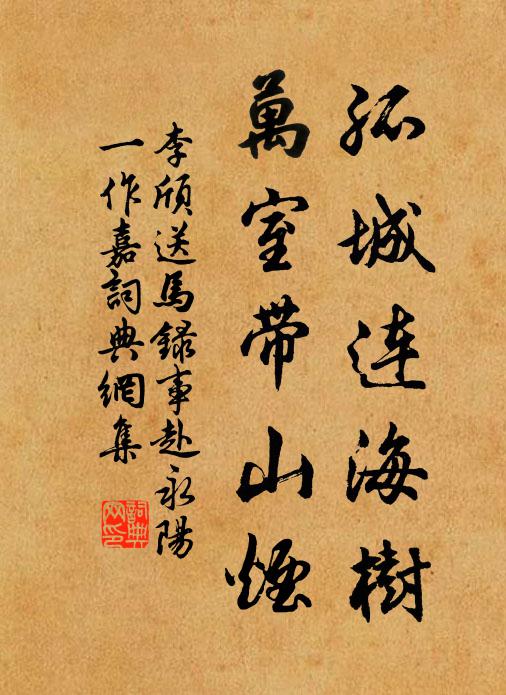 孤城连海樹
萬室帶山煙
李頎送馬錄事赴永陽
一作嘉詞典網集
詞典网印